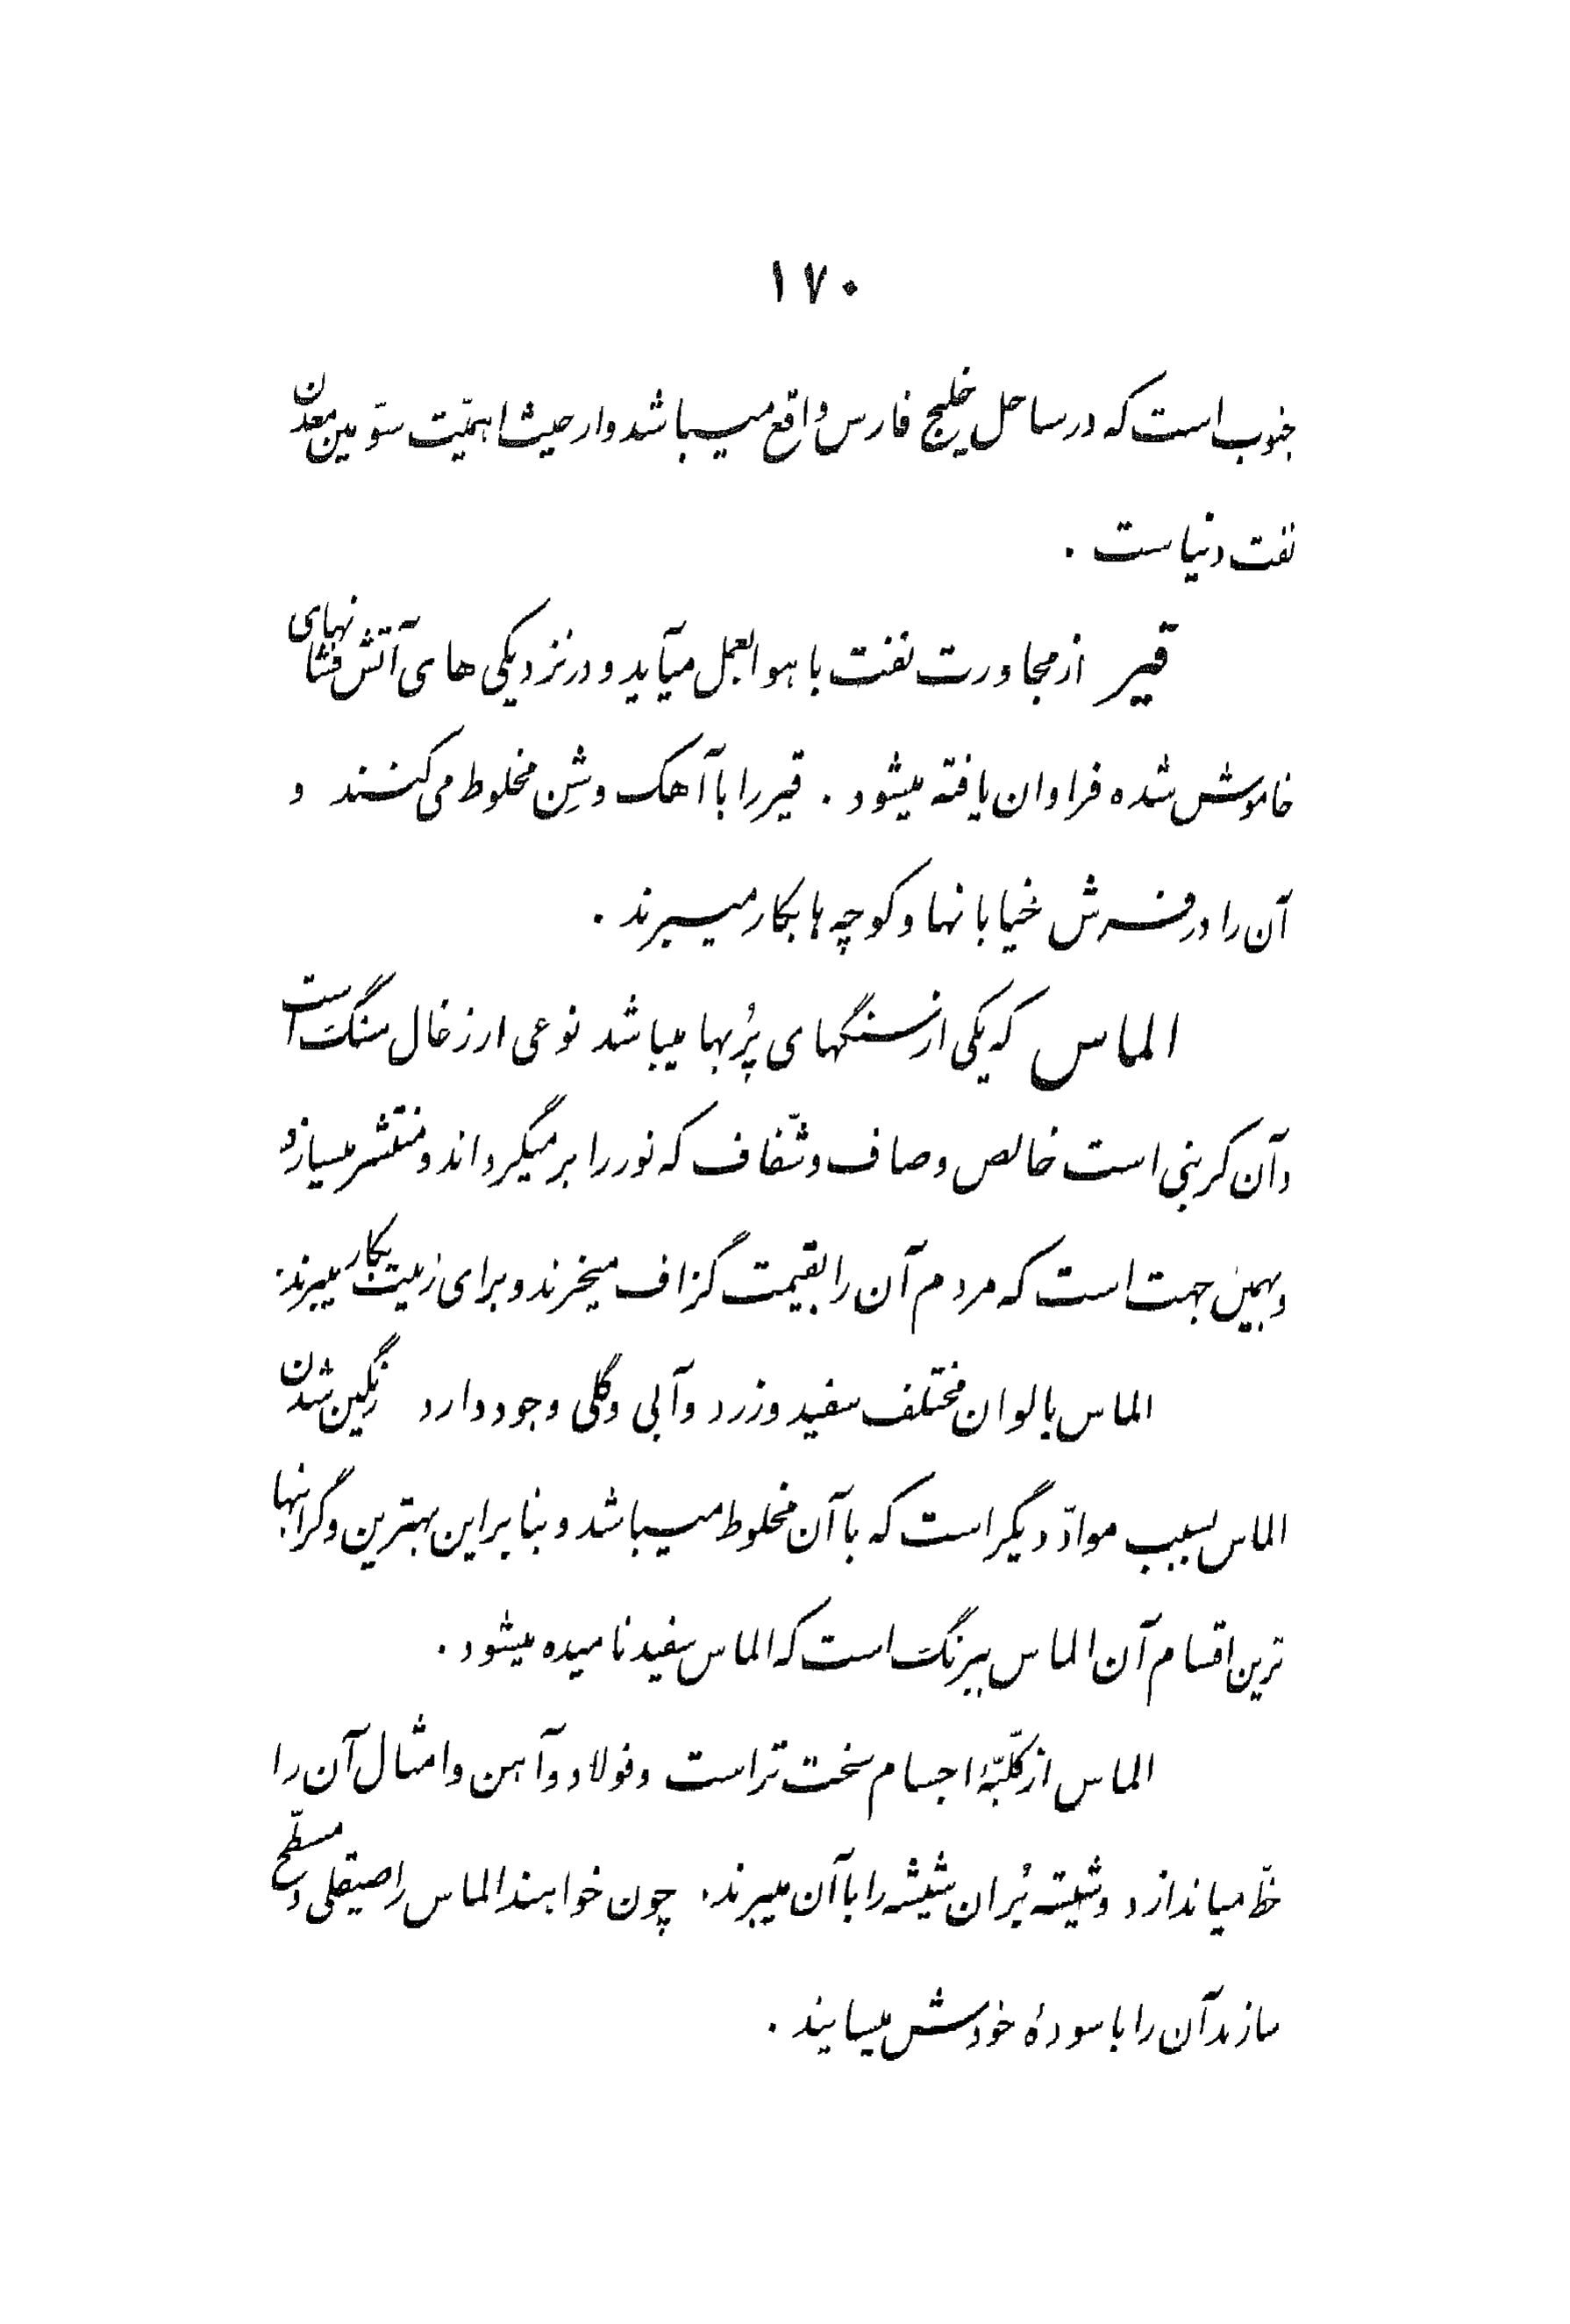 ۱۷۰
جنوب است که در ساحل خلیج فارس واقع میباشد و از حیث اهمّیّت سوّمین معدن
نفت دنیاست .
قیر از مجاورت نفت با هوا بعمل میآید و در نزدیکی های آتش فشانهای
خاموش شده فراوان یافته میشود . قیر را با آهک و شِن مخلوط می کنند و
آن را در فرش خیابانها و کوچه ها بکار میبرند .
الماس که یکی از سنگهای پُربها میباشد نوعی از زغال سنگ است
و آن کربنی است خالص و صاف و شفّاف که نور را بر میگرداند و منتشر میسازد
و بهمین جهت است که مردم آن را بقیمت گزاف میخرند و برای زینت بکار میبرند .
الماس بالوان مختلف سفید و زرد و آبی و گلی وجود دارد رنگین شدن
الماس بسبب موادّ دیگر است که با آن مخلوط میباشد و بنا براین بهترین و گرانبها
ترین اقسام آن الماس بیرنگ است که الماس سفید نامیده میشود .
الماس از کلّیّهٔ اجسام سخت تر است و فولاد و آهن و امثال آن را
خطّ میاندازد و شیشه بُران شیشه را با آن میبرند . چون خواهند الماس را صیقلی و مسطّح
سازند آن را با سودهٔ خودش میسایند .